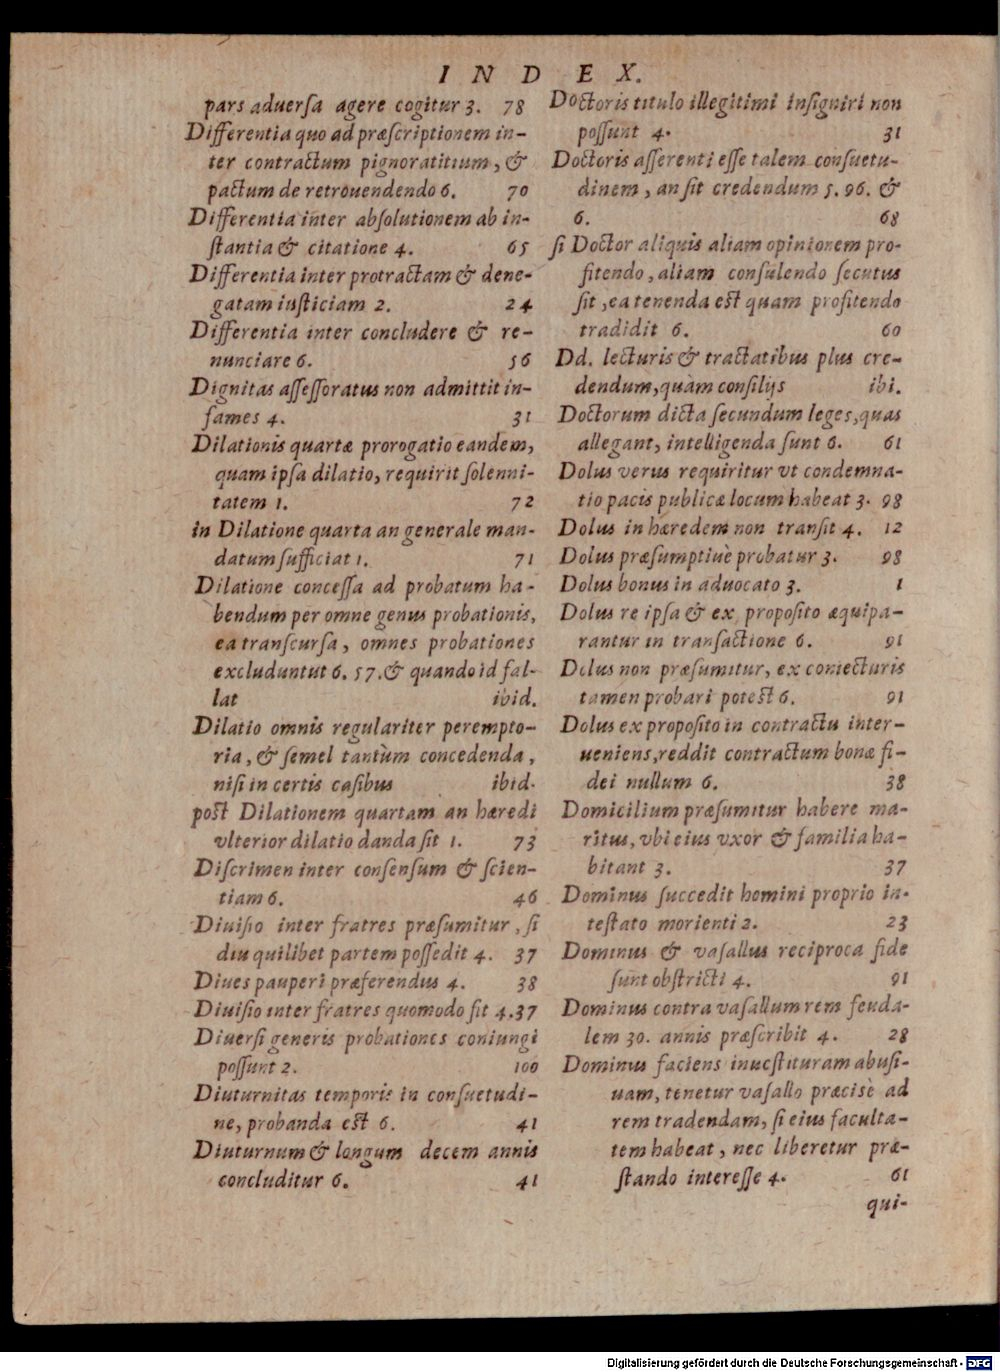 INDEX.
pars aduerſa agere cogitur 3. 78
Differentia quo ad præſcriptionem in-
ter contractum pignoratitium, &
pactum de retrouendendo 6. 70
Differentia inter abſolutionem ab in-
ſtantia & citatione 4. 65
Differentia inter protractam & dene-
gatam iuſticiam 2. 24
Differentia inter concludere & re-
nunciare 6. 56
Dignitas aſſeſſoratus non admittit in-
fames 4. 31
Dilationis quartæ prorogatio eandem,
quam ipſa dilatio, requirit ſolenni-
tatem 1. 72
in Dilatione quarta an generale man-
datum ſufficiat 1. 71
Dilatione conceſſa ad probatum ha-
bendum per omne genus probationis,
ea tranſcurſa, omnes probationes
excluduntut 6. 57. & quando id fal-
lat ibid.
Dilatio omnis regulariter perempto-
ria, & ſemel tantùm concedenda,
niſi in certis caſibus ibid.
poſt Dilationem quartam an hæredi
vlterior dilatio danda ſit 1. 73
Diſcrimen inter conſenſum & ſcien-
tiam 6. 46
Diuiſio inter fratres præſumitur, ſi
diu quilibet partem poſſedit 4. 37
Diues pauperi præferendus 4. 38
Diuiſio inter fratres quomodo fit 4. 37
Diuerſi generis probationes coniungi
poſſunt 2. 100
Diuturnitas temporis in conſuetudi-
ne, probanda eſt 6. 41
Diuturnum & longum decem annis
concluditur 6. 41
Doctoris titulo illegitimi inſigniri non
poſſunt 4. 31
Doctoris aſſerenti eſſe talem conſuetu-
dinem, an ſit credendum 5. 96. &
6. 68
ſi Doctor aliquis aliam opinionem pro-
fitendo, aliam conſulendo ſecutus
ſit, ea tenenda eſt quam profitendo
tradidit 6. 60
Dd. lecturis & tractatibus plus cre-
dendum, quàm conſilijs ibi.
Doctorum dicta ſecundum leges, quas
allegant, intelligenda ſunt 6. 61
Dolus verus requiritur vt condemna-
tio pacis publicæ locum habeat 3. 98
Dolus in hæredem non tranſit 4. 12
Dolus præſumptiuè probatur 3. 98
Dolus bonus in aduocato 3. 1
Dolus re ipſa & ex propoſito æquipa-
rantur in tranſactione 6. 91
Dolus non præſumitur, ex coniecturis
tamen probari poteſt 6. 91
Dolus ex propoſito in contractu inter-
ueniens, reddit contractum bonæ fi-
dei nullum 6. 38
Domicilium præſumitur habere ma-
ritus, vbi eius vxor & familia ha-
bitant 3. 37
Dominus ſuccedit homini proprio in-
teſtato morienti 2. 23
Dominus & vaſallus reciproca fide
ſunt obſtricti 4. 91
Dominus contra vaſallum rem feuda-
lem 30. annis præſcribit 4. 28
Dominus faciens inueſtituram abuſi-
uam, tenetur vaſallo præcisè ad
rem tradendam, ſi eius faculta-
tem habeat, nec liberetur præ-
ſtando intereſſe 4. 61
qui-
Digitalisierung gefördert durch die Deutsche Forschungsgemeinschaft - DFG